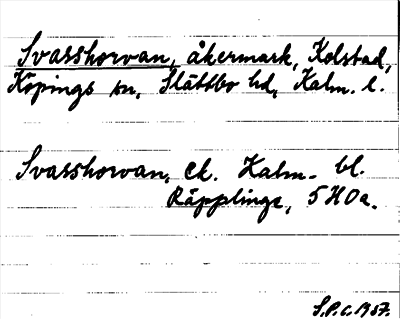 Svasshorvan, åkermark, Kolstad,
Köpings sn, Slättbo hd, Kalm. l.
Svasshorvan, Ek. Kalm. bl.
Räpplinge, 5H0a.
S.P.C. 1957.